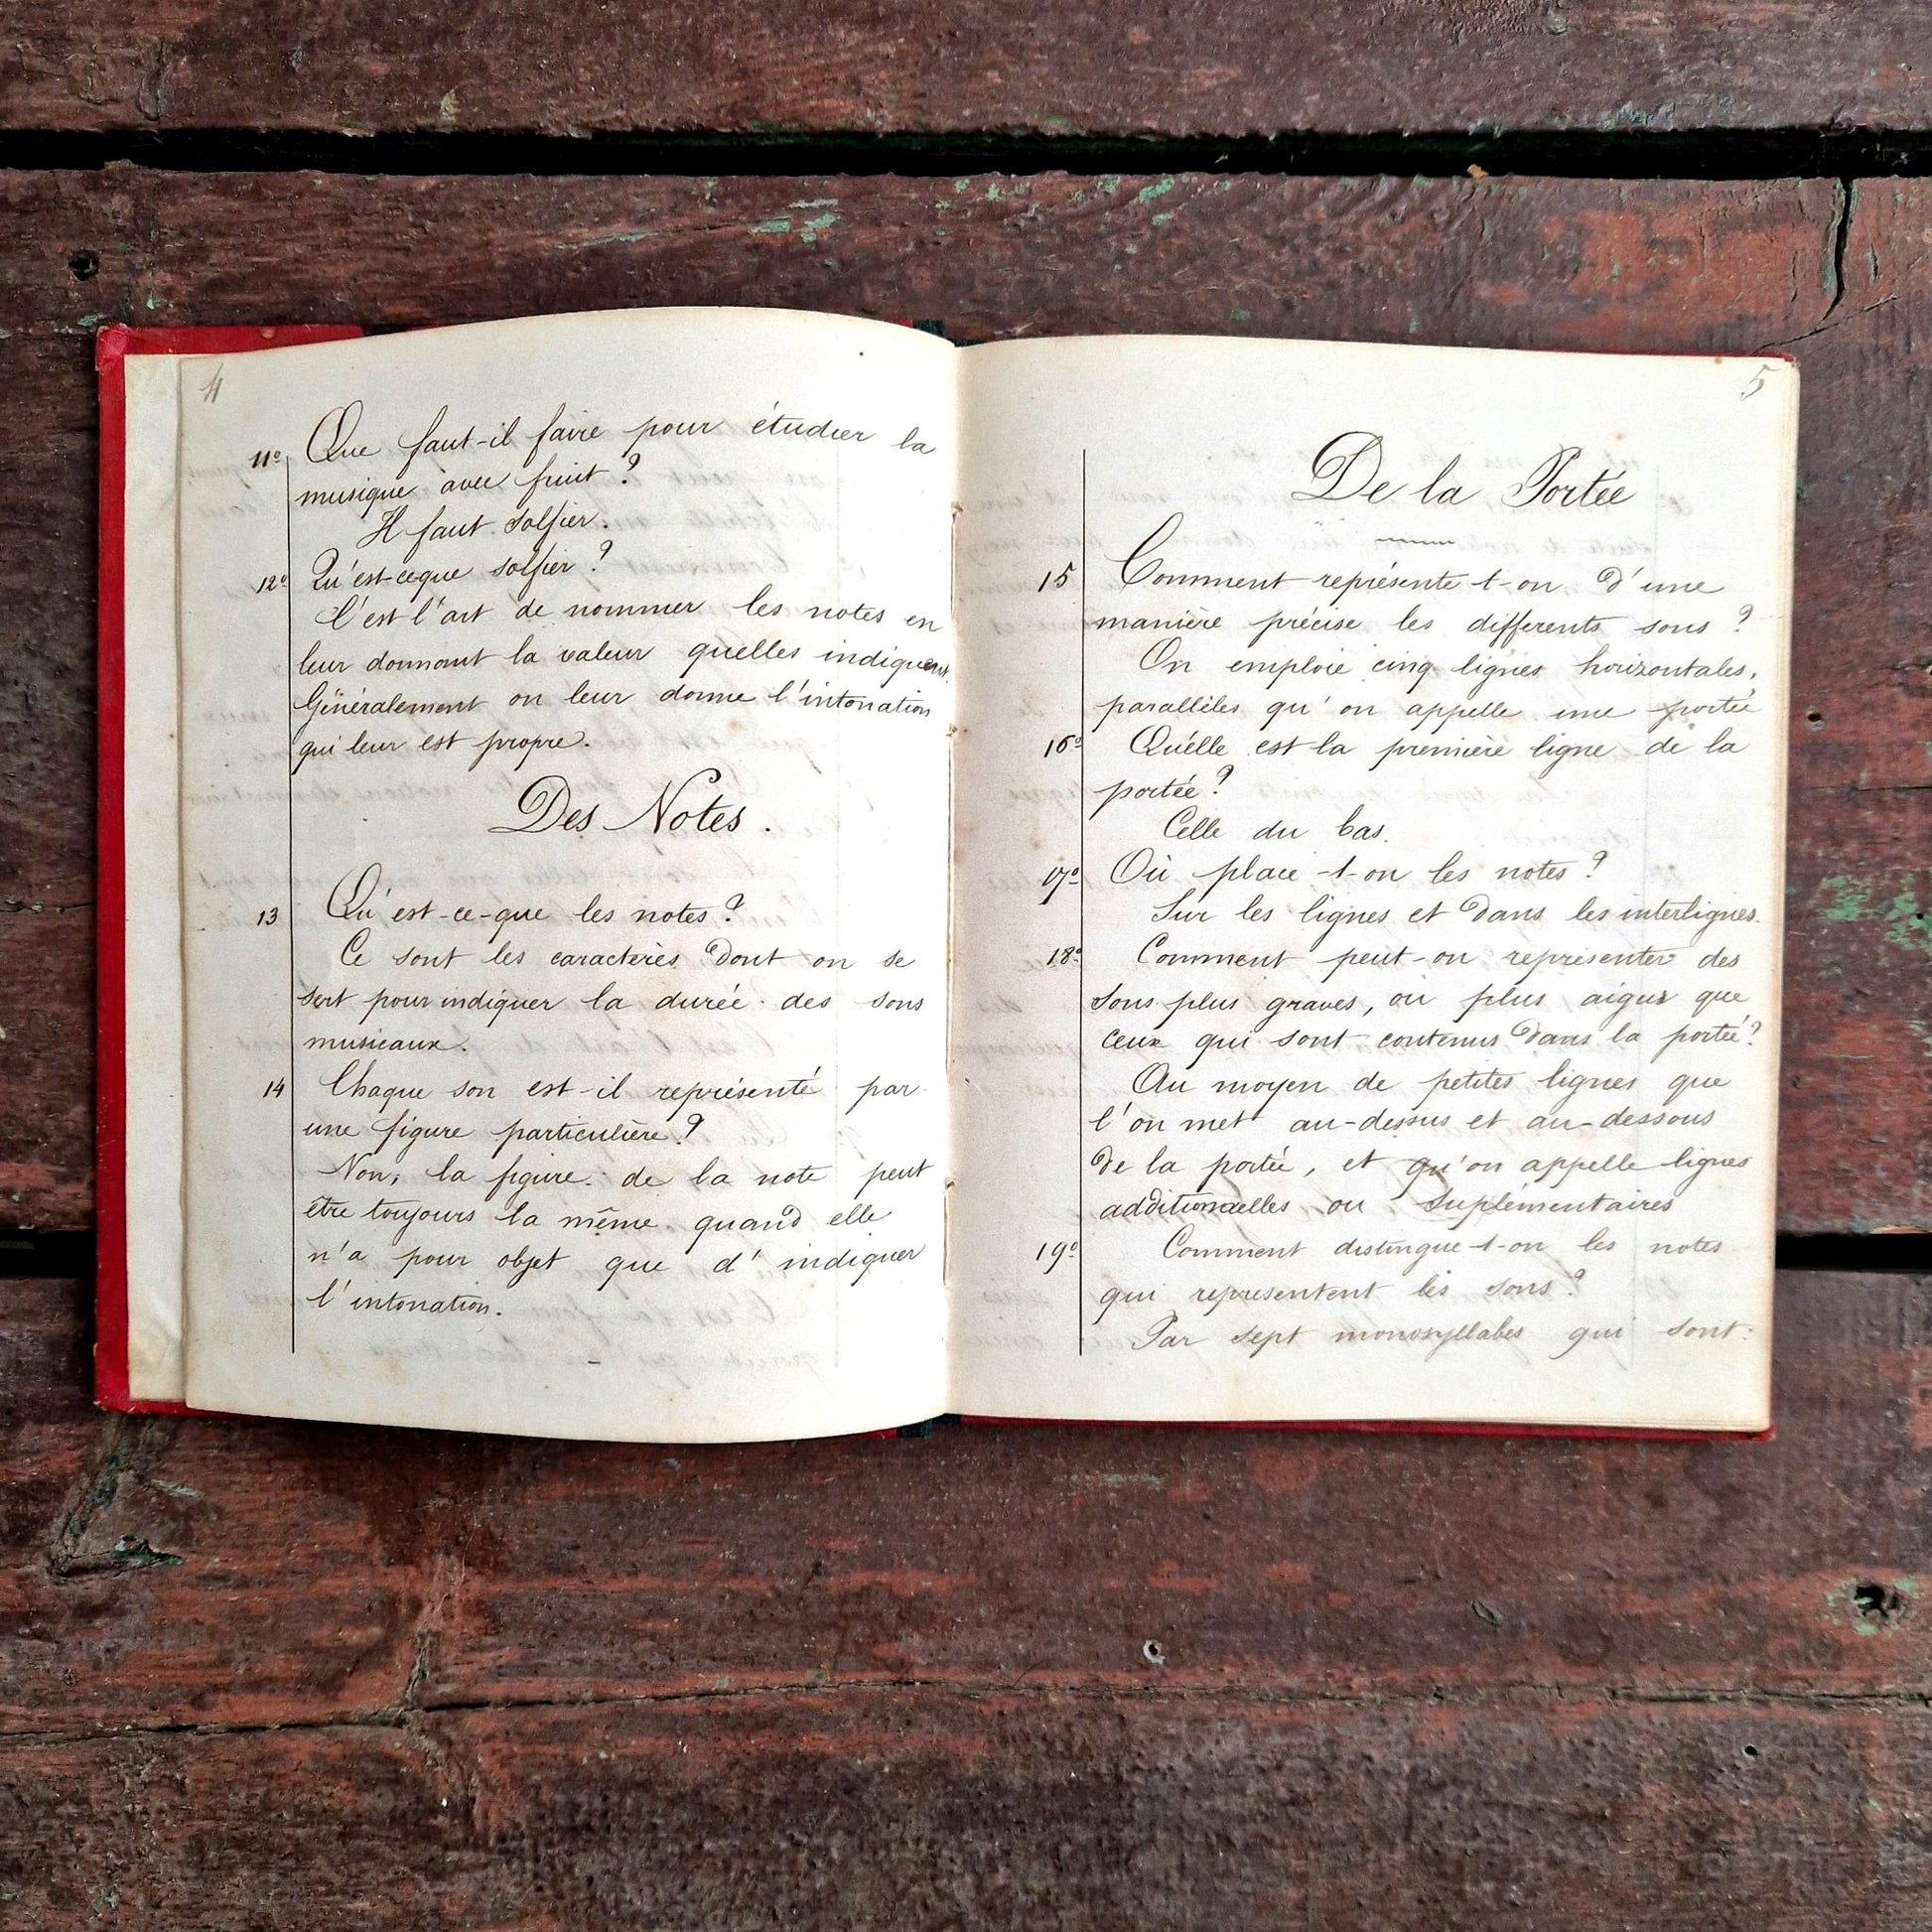 4
11º Que faut-il faire pour étudier la
musique avec fruit ?
Il faut solfier.
12º Qu'est-ceque solfier ?
C'est l'art de nommer les notes en
leur donnant la valeur quelles indiquent.
Généralement on leur donne l'intonation
qui leur est propre.
Des Notes.
13 Qu'est-ce-que les notes ?
Ce sont les caractères dont on se
sert pour indiquer la durée des sons
musicaux.
14 Chaque son est-il représenté par
une figure particulière ?
Non, la figure de la note peut
être toujours la même quand elle
n'a pour objet que d'indiquer
l'intonation.
5
De la Portée
15 Comment représente-t-on d'une
manière précise les differents sons ?
On emploie cinq lignes horizontales,
parallèles qu'on appelle une portée
16º Quelle est la première ligne de la
portée ?
Celle du bas.
17º Où place-t-on les notes ?
Sur les lignes et dans les interlignes.
18º Comment peut-on représenter des
sons plus graves, ou plus aigus que
ceux qui sont contenus dans la portée ?
Au moyen de petites lignes que
l'on met au-dessus et au-dessous
de la portée, et qu'on appelle lignes
additionnelles ou suplémentaires
19º Comment distingue-t-on les notes
qui representent les sons ?
Par sept monosyllabes qui sont :